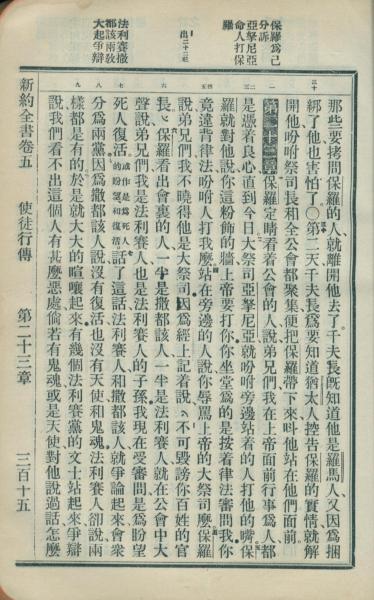 保羅爲己
分訴
亞拏尼亞
命人打保
羅
出二十二㐧
法利賽撒
都該兩敎
大起爭辯
那些要拷問保羅的人就離開他去了千夫長旣知道他是羅馬人又因爲捆
綁了他也害怕了〇第二天千夫長爲要知道猶太人控告保羅的實情就解
開他吩咐祭司長和全公會都聚集便把保羅帶下來呌他站在他們面前
第二十三章保羅定睛看着公會的人說弟兄們我在上帝面前行事爲人都
是憑着良心直到今日大祭司亞拏尼亞就吩咐旁邊站着的人打他的嘴保
羅就對他說你這粉飾的牆上帝要打你你坐堂爲的是按着律法審問我你
竟違背律法吩咐人打我麼站在旁邊的人說你辱罵上帝的大祭司麼保羅
說弟兄們我不曉得他是大祭司因爲經上記着說不可毀謗你百姓的官
長保羅看出會裏的人一半是撒都該人一半是法利賽人就在公會中大
聲說弟兄們我是法利賽人也是法利賽人的子孫我現在受審問是爲盼望
死人復活或作是爲死人的盼望和復活話了這話法利賽人和撒都該人就爭論起來會衆
分爲兩黨因爲撒都該人說沒有復活也沒有天使和鬼魂法利賽人卻說兩
樣都是有的於是就大大的喧嚷起來有幾個法利賽黨的文士站起來爭辯
說我們看不出這個人有甚麼惡處倘若有鬼魂或是天使對他說過話怎麼
新約全書卷五 使徒行傳 第二十三章 三百十五